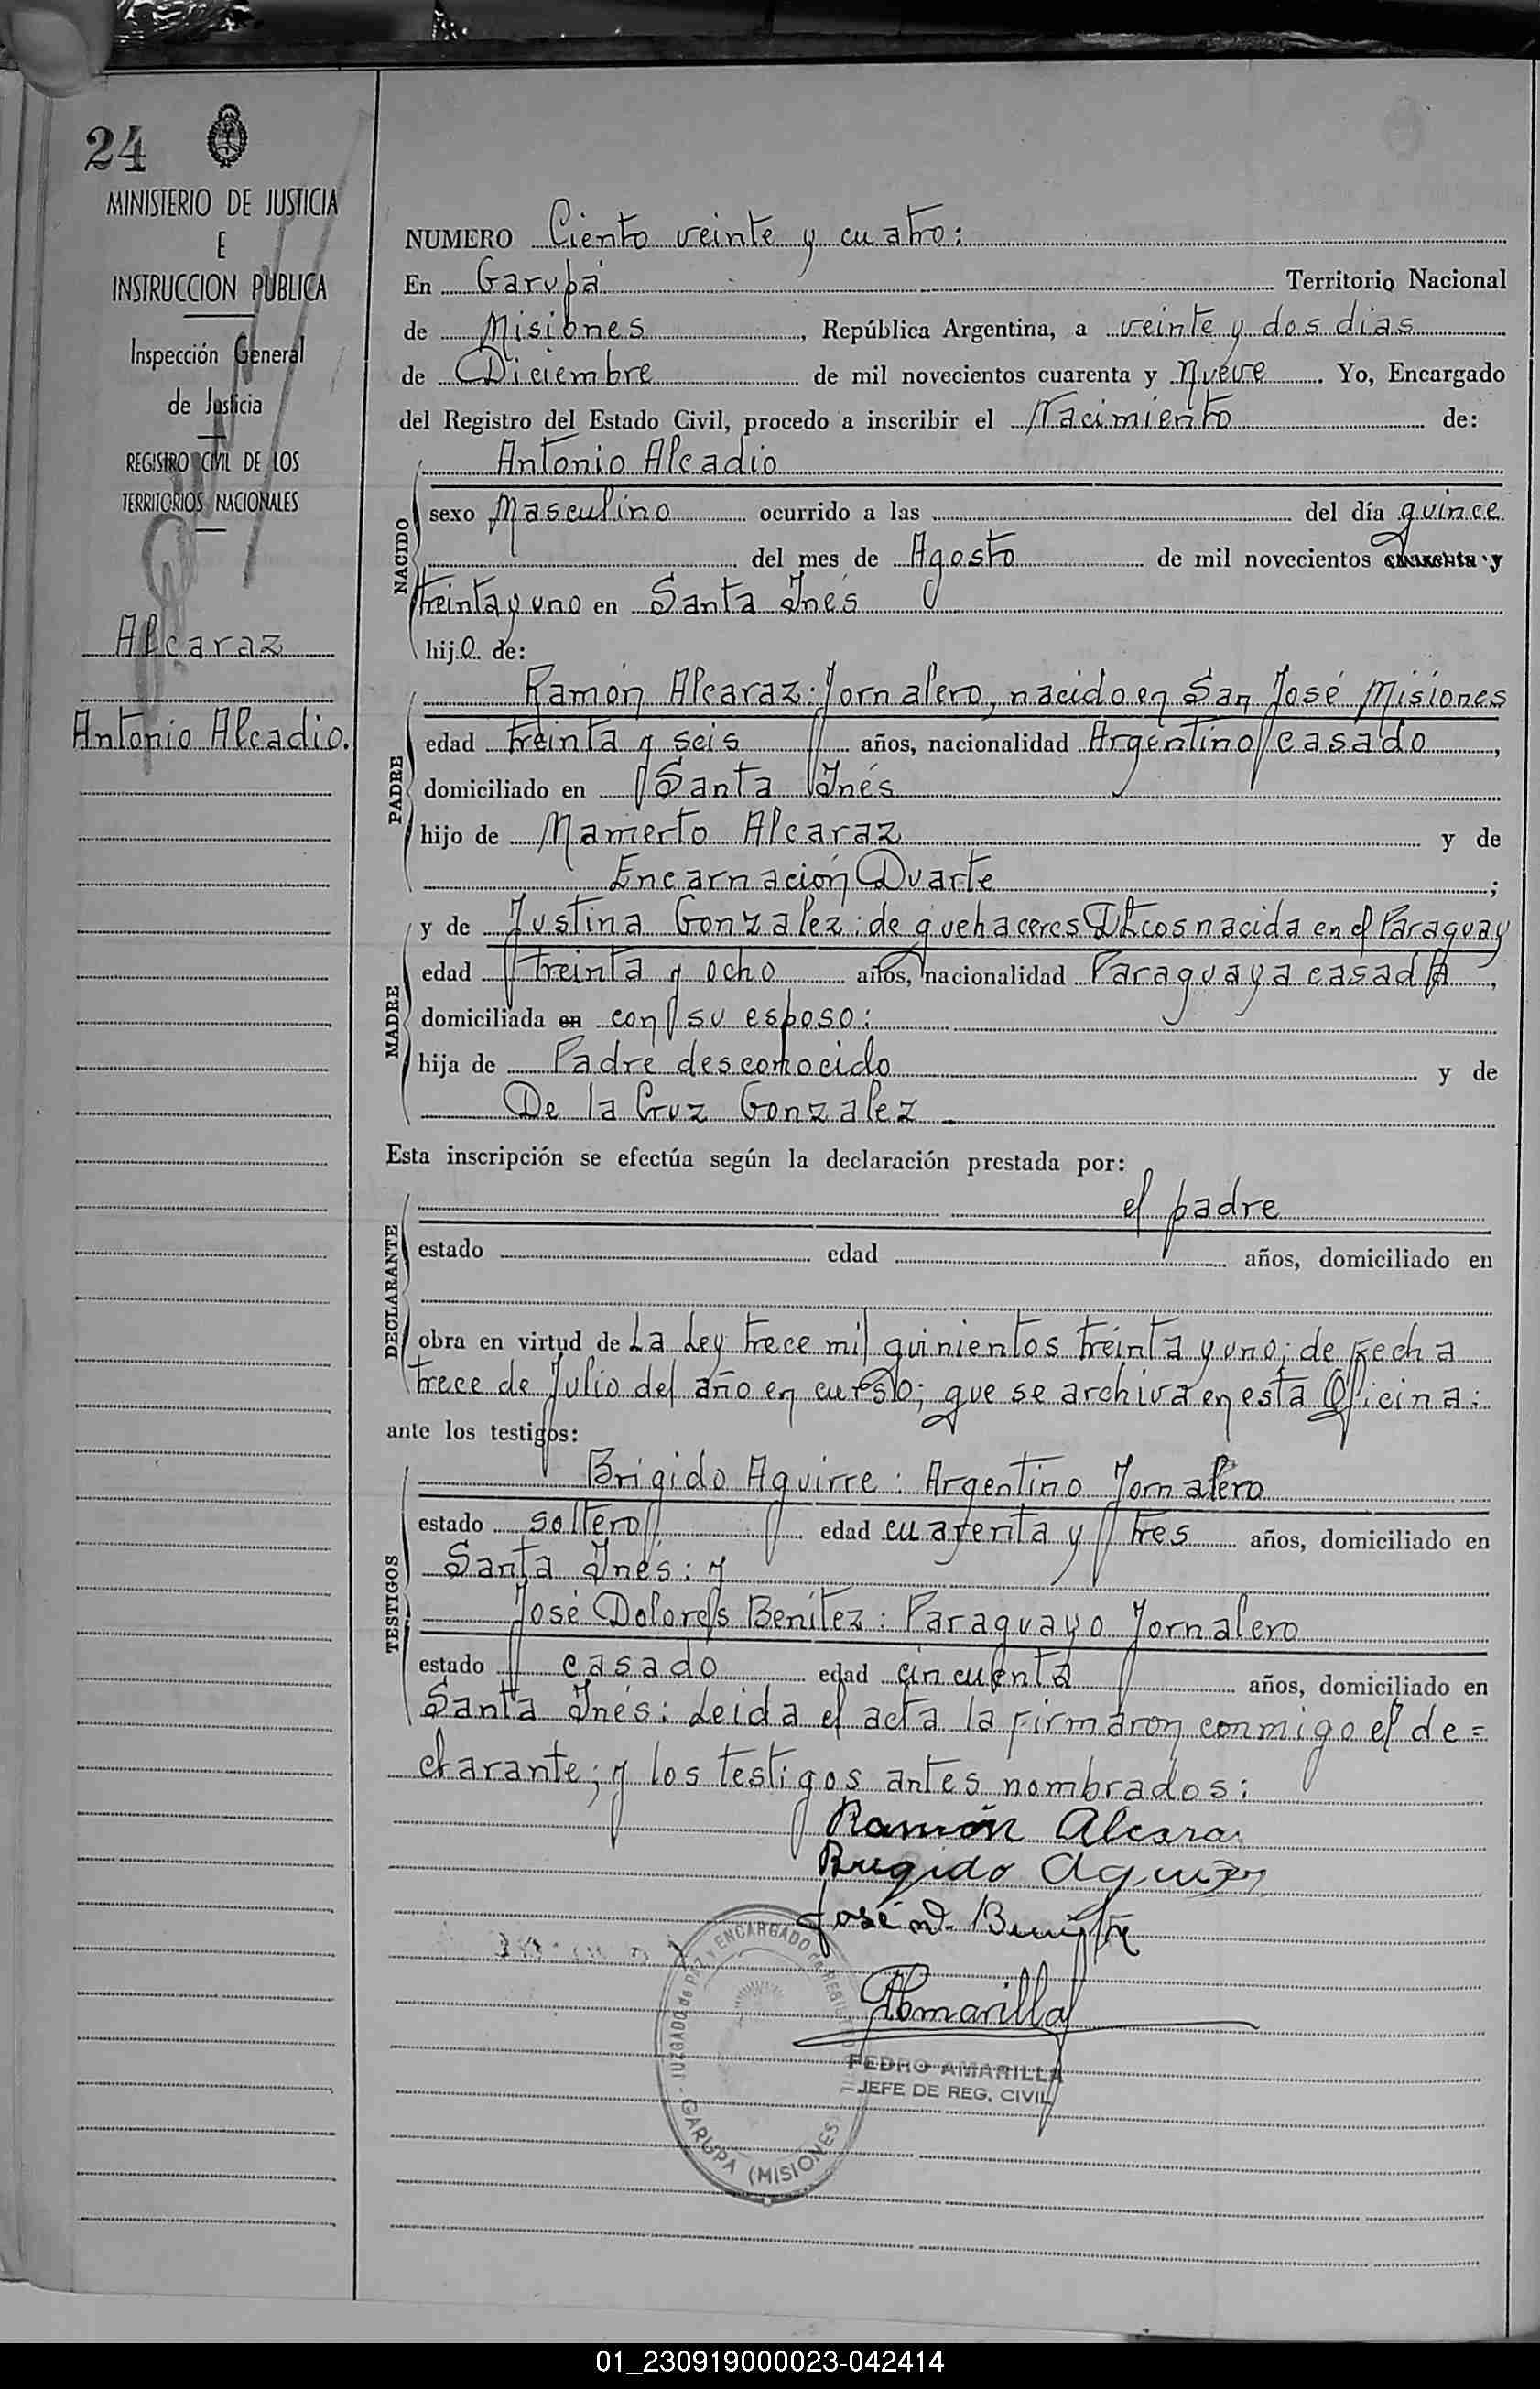 24
MINISTERIO DE JUSTICIA
E
INSTRUCCION PUBLICA
Inspección General
de Justicia
REGISTRO CIVIL DE LOS
TERRITORIOS NACIONALES
Alcaraz
Antonio Alcadio.
NUMERO Ciento veinte y cuatro:
En Garupá Territorio Nacional
de Misiones, República Argentina, a veinte y dos dias
de Diciembre de mil novecientos cuarenta y Nueve. Yo, Encargado
del Registro del Estado Civil, procedo a inscribir el Nacimiento de:
NACIDO
Antonio Alcadio
sexo Masculino ocurrido a las del día quince
del mes de Agosto de mil novecientos cuarenta y
treinta y uno en Santa Inés
hijo de:
PADRE
Ramón Alcaraz: Jornalero, nacido en San José Misiones
edad treinta y seis años, nacionalidad Argentino casado,
domiciliado en Santa Inés
hijo de Mamerto Alcaraz y de
Encarnación Duarte;
MADRE
y de Justina Gonzalez: de quehaceres Dtcos nacida en el Paraguay
edad treinta y ocho años, nacionalidad Paraguaya casada,
domiciliada en con su esposo:
hija de Padre desconocido y de
De la Cruz Gonzalez
Esta inscripción se efectúa según la declaración prestada por:
DECLARANTE
el padre
estado edad años, domiciliado en
obra en virtud de La Ley trece mil quinientos treinta y uno; de fecha
trece de Julio del año en curso; que se archiva en esta Oficina:
ante los testigos:
TESTIGOS
Brigido Aguirre: Argentino Jornalero
estado soltero edad cuarenta y tres años, domiciliado en
Santa Inés: y
José Dolores Benítez: Paraguayo Jornalero
estado casado edad cincuenta años, domiciliado en
Santa Inés: Leida el acta la firmaron conmigo el de=
clarante; y los testigos antes nombrados:
Ramón Alcara
Brigido Aguirre
José D. Benitez
PAmarilla
JUZGADO de PAZ y ENCARGADO de REGISTRO
GARUPA (MISIONES)
PEDRO AMARILLA
JEFE DE REG. CIVIL
01_230919000023-042414